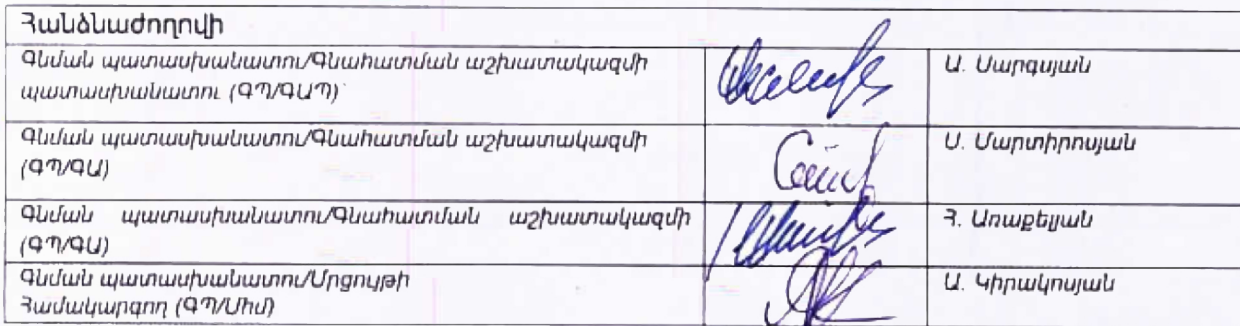 Հանձնաժողովի
Գնման պատասխանատու/Գնահատման աշխատակազմի
պատասխանատու (ԳՊ/ԳԱՊ)
Ա. Սարգսյան
Գնման պատասխանատու/Գնահատման աշխատակազմի
(ԳՊ/ԳԱ)
Ս. Մարտիրոսյան
Գնման պատասխանատու/Գնահատման աշխատակազմի
(ԳՊ/ԳԱ)
Հ. Առաքելյան
Գնման պատասխանատու/Մրցույթի
Համակարգող (ԳՊ/Մհմ)
Ա. Կիրակոսյան